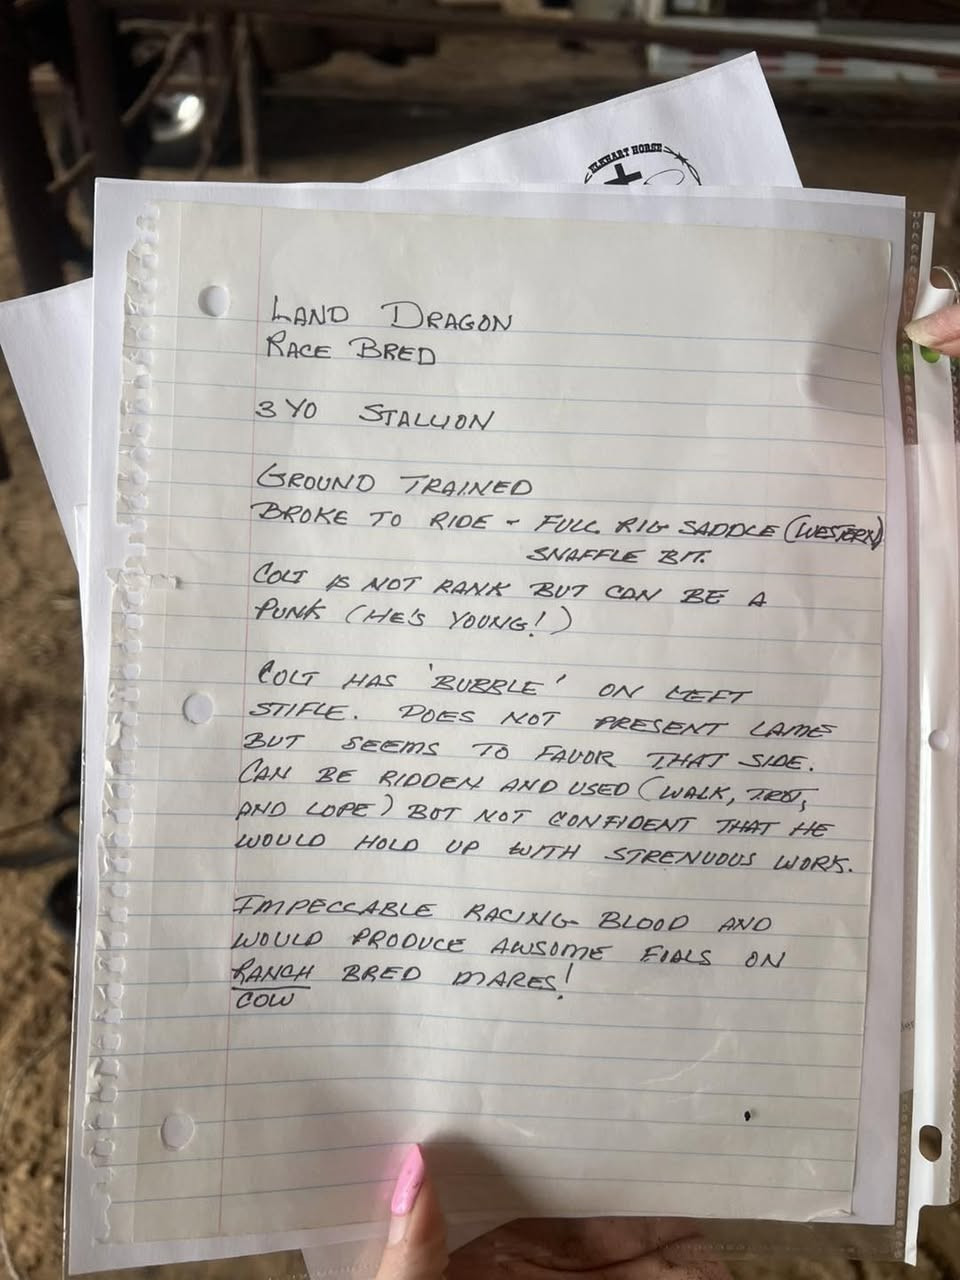 ELKHART HORSE
LAND DRAGON
RACE BRED
3 YO STALLION
GROUND TRAINED
BROKE TO RIDE - FULL RIG SADDLE (WESTERN)
SNAFFLE BIT.
COLT IS NOT RANK BUT CAN BE A
PUNK (HE'S YOUNG!)
COLT HAS 'BUBBLE' ON LEFT
STIFLE. DOES NOT PRESENT LAME
BUT SEEMS TO FAVOR THAT SIDE.
CAN BE RIDDEN AND USED (WALK, TROT,
AND LOPE) BUT NOT CONFIDENT THAT HE
WOULD HOLD UP WITH STRENUOUS WORK.
IMPECCABLE RACING BLOOD AND
WOULD PRODUCE AWSOME FOALS ON
RANCH BRED MARES!
COW